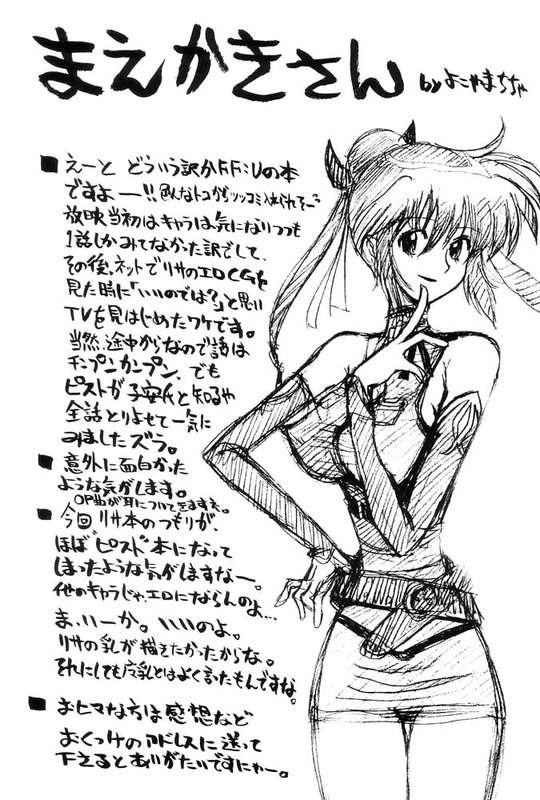 まえかきさん
by よこやまちちゃ
■えーと どういう訳かFF:Uの本
ですよー!!
放映当初はキャラは気になりつつも
1話しかみてなかった訳でして、
その後、ネットでリサのエロCGを
見た時に「いいのでは?」と思い
TVを見はじめたワケです。
当然、途中からなので話は
チンプンカンプン、でも
ピストが子安氏と知るや
全話とりよせて一気に
みましたズラ。
■意外に面白かった
ような気がします。
OP曲が耳について
■今回リサ本のつもりが、
ほぼ"ピスト"本になって
しまったような気がしますなー。
他のキャラじゃ、エロにならんのよ…
ま、いーか。いいのよ。
リサの乳が描きたかったからな。
それにしても 乳とはよく言ったもんですな。
■おヒマな方は感想など
おくつけのアドレスに送って
下さるとありがたいですにゃー。